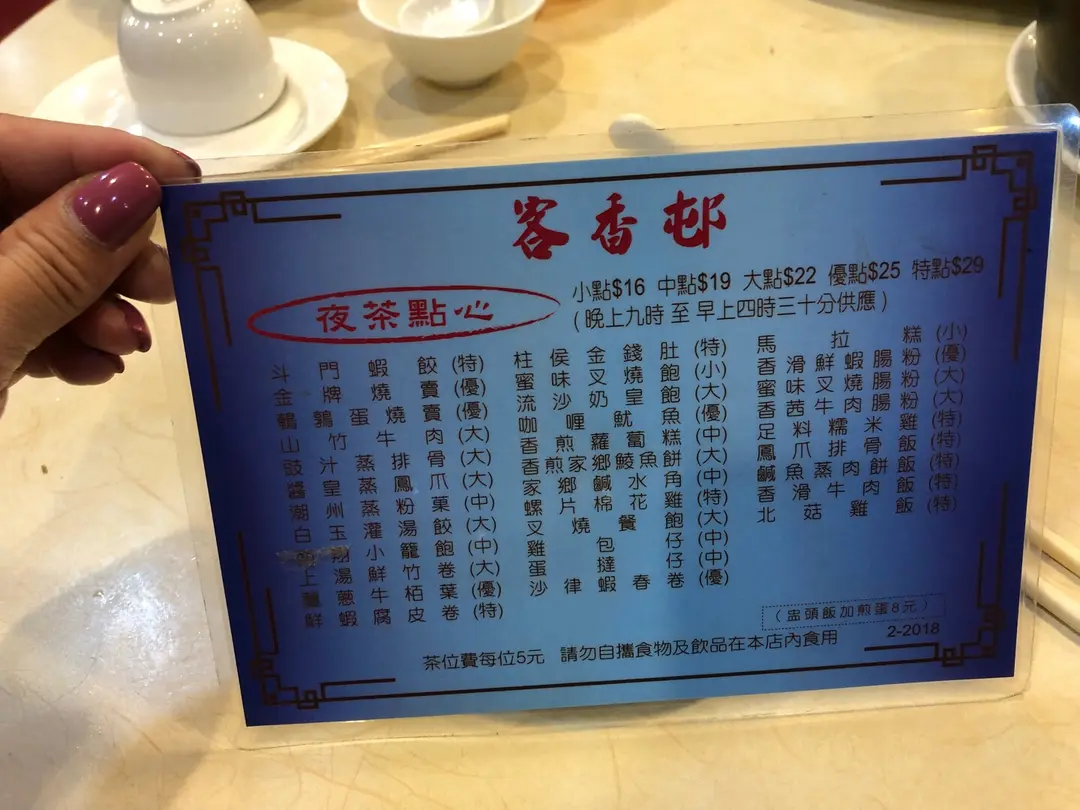 客香邨
夜茶點心
小點$16 中點$19 大點$22 優點$25 特點$29
(晚上九時 至 早上四時三十分供應)
斗門蝦餃(特)
金牌燒賣(優)
鵪鶉蛋燒賣(優)
山竹牛肉(大)
豉汁蒸排骨(大)
醬皇蒸鳳爪(大)
潮州蒸粉菓(中)
白玉灌湯餃(大)
小籠飽(中)
上湯鮮竹卷(大)
薑蔥牛栢葉(優)
鮮蝦腐皮卷(特)
柱侯金錢肚(特)
蜜味叉燒飽(小)
流沙奶皇飽(大)
咖喱魷魚(優)
香煎蘿蔔糕(中)
香煎家鄉鯪魚餅(大)
家鄉鹹水角(中)
螺片棉花雞(特)
叉燒餐飽(大)
雞包仔(中)
蛋撻仔(中)
沙律蝦春卷(優)
馬拉糕(小)
香滑鮮蝦腸粉(優)
蜜味叉燒腸粉(大)
香茜牛肉腸粉(大)
足料糯米雞(特)
鳳爪排骨飯(特)
鹹魚蒸肉餅飯(特)
香滑牛肉飯(特)
北菇雞飯(特)
(盅頭飯加煎蛋8元)
茶位費每位5元 請勿自攜食物及飲品在本店內食用
2-2018